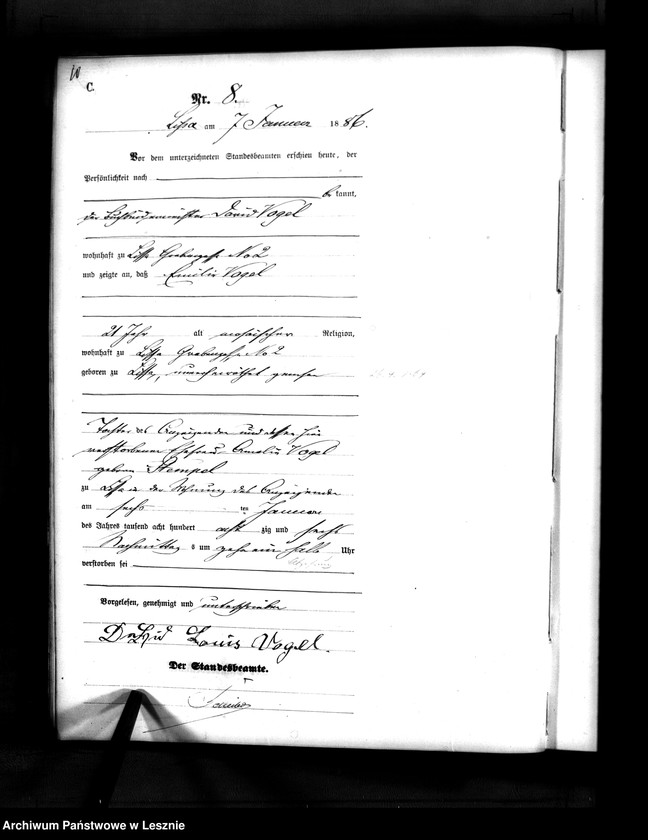 10
C.
Nr. 8.
Lissa am 7 Januar 1886.
Vor dem unterzeichneten Standesbeamten erschien heute, der
Persönlichkeit nach
bekannt,
der Vogel
wohnhaft zu Lissa No 2
und zeigte an, daß Emilie Vogel
21 Jahr alt mosaischer Religion,
wohnhaft zu Lissa No 2
geboren zu Lissa, unverehelicht gewesen
Tochter des Anzeigenden und dessen hier
verstorbenen Ehefrau Amalie Vogel
geborene Stempel
zu Lissa in der Wohnung des Anzeigenden
am sechs ten Januar
des Jahres tausend acht hundert acht zig und sechs
Nachmittags um zehn ein halb Uhr
verstorben sei
Vorgelesen, genehmigt und unterschrieben
David Louis Vogel.
Der Standesbeamte.
Archiwum Państwowe w Lesznie